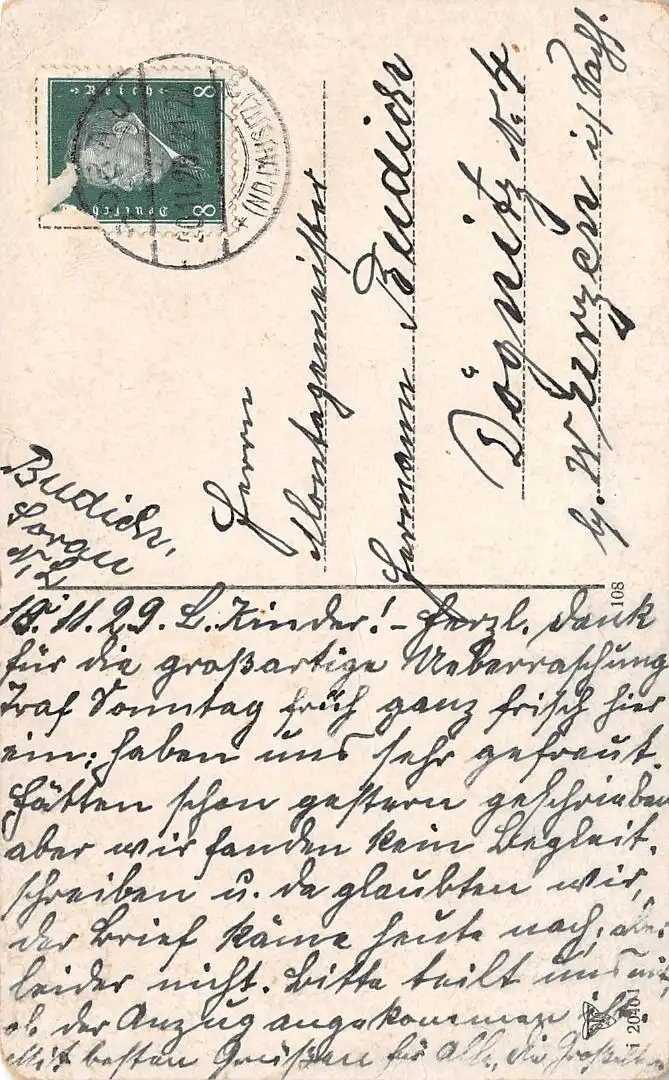 Deutsches Reich
8 8
SORAU
(NDLAUSITZ)
Herrn
Montagemeister
Hermann Budich
Dögnitz N. 4
b. Wurzen i/Sachs.
Budich,
Sorau
N/L
108
18. 11. 29. L. Kinder! - Herzl. Dank
für die großartige Ueberraschung
Traf Sonntag früh ganz frisch hier
ein; haben uns sehr gefreut.
Hätten schon gestern geschrieben
aber wir fanden kein Begleit-
schreiben u. da glaubten wir,
der Brief käme heute nach, aber
leider nicht. Bitte teilt uns mit,
ob der Anzug angekommen ist.
Mit besten Grüßen für Alle, die Großeltern
i 2040 1